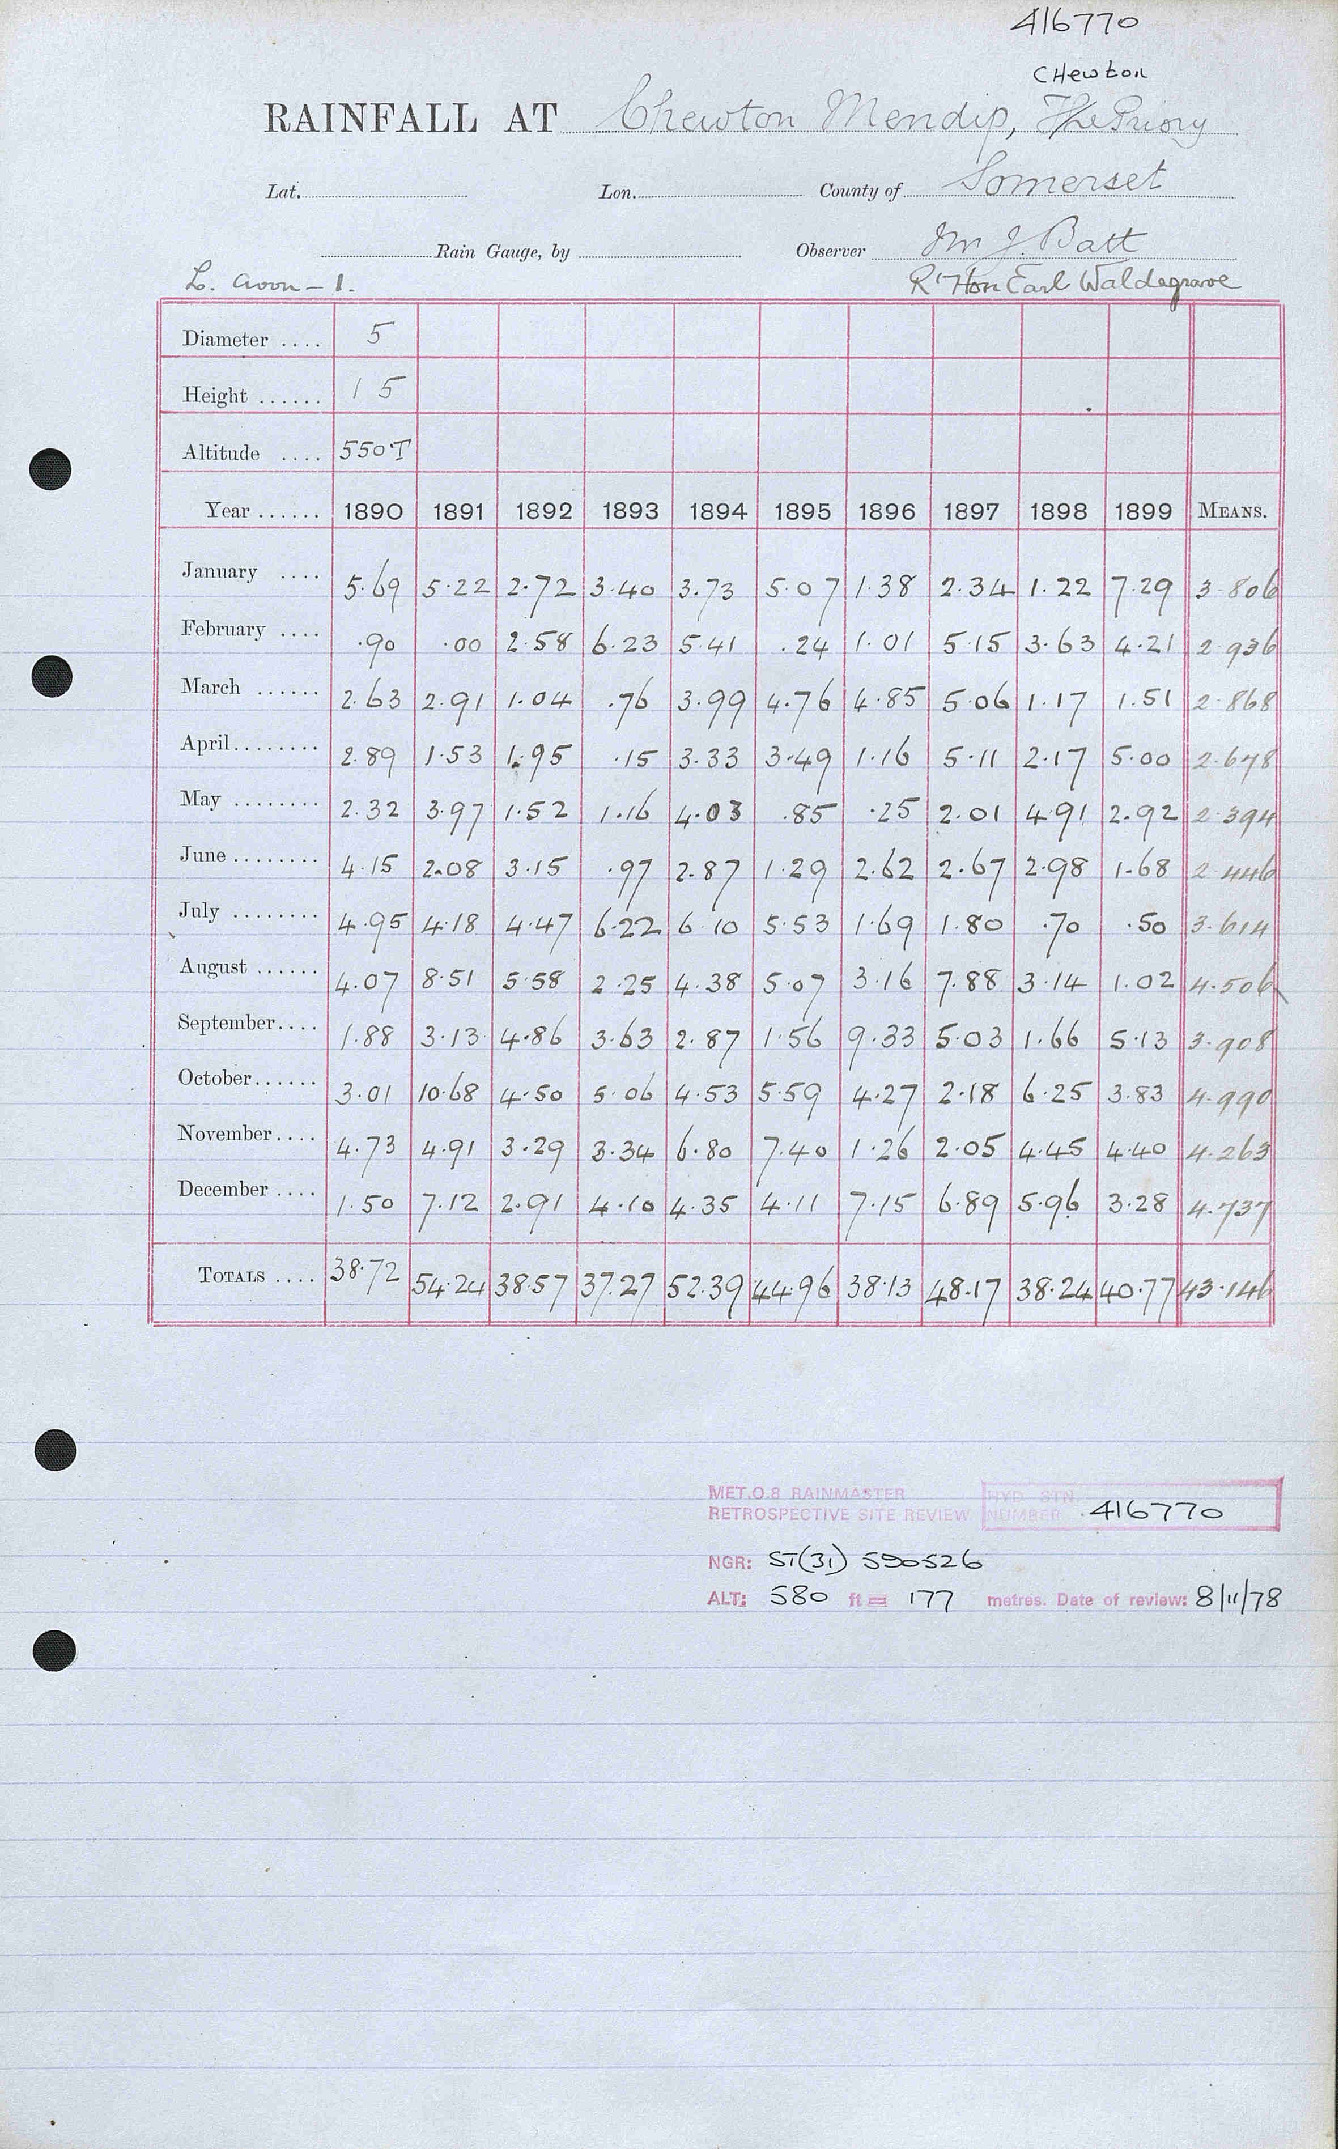 416770
CHewton
RAINFALL AT Chewton Mendip, The Priory
Lat. Lon. County of Somerset
Rain Gauge, by Observer Mr J. Batt
L. Avon - 1. Rt Hon Earl Waldegrave
Diameter .... 5
Height ...... 1 5
Altitude .... 550T
Year ...... 1890 1891 1892 1893 1894 1895 1896 1897 1898 1899 MEANS.
January .... 5.69 5.22 2.72 3.40 3.73 5.07 1.38 2.34 1.22 7.29 3.806
February .... .90 .00 2.58 6.23 5.41 .24 1.01 5.15 3.63 4.21 2.936
March ...... 2.63 2.91 1.04 .76 3.99 4.76 4.85 5.06 1.17 1.51 2.868
April ........ 2.89 1.53 1.95 .15 3.33 3.49 1.16 5.11 2.17 5.00 2.678
May ........ 2.32 3.97 1.52 1.16 4.03 .85 .25 2.01 4.91 2.92 2.394
June ........ 4.15 2.08 3.15 .97 2.87 1.29 2.62 2.67 2.98 1.68 2.446
July ........ 4.95 4.18 4.47 6.22 6.10 5.53 1.69 1.80 .70 .50 3.614
August ...... 4.07 8.51 5.58 2.25 4.38 5.07 3.16 7.88 3.14 1.02 4.506
September.... 1.88 3.13 4.86 3.63 2.87 1.56 9.33 5.03 1.66 5.13 3.908
October...... 3.01 10.68 4.50 5.06 4.53 5.59 4.27 2.18 6.25 3.83 4.990
November.... 4.73 4.91 3.29 3.34 6.80 7.40 1.26 2.05 4.45 4.40 4.263
December .... 1.50 7.12 2.91 4.10 4.35 4.11 7.15 6.89 5.96 3.28 4.737
TOTALS .... 38.72 54.24 38.57 37.27 52.39 44.96 38.13 48.17 38.24 40.77 43.146
MET.O.8 RAINMASTER HYD. STN.
RETROSPECTIVE SITE REVIEW NUMBER 416770
NGR: ST(31) 590526
ALT: 580 ft = 177 metres. Date of review: 8/11/78